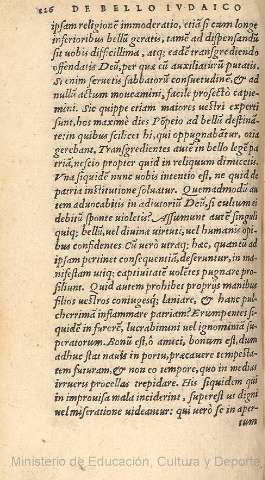 126 DE BELLO IVDAICO
ipsam religionẽ immoderatio, etiã si cum longe
inferioribus bellũ geratis, tamẽ ad dispensandũ
sit uobis difficillima, atq; eadẽ transgrediendo
offendatis Deũ, per quẽ eũ auxiliaturũ putatis.
Si enim seruetis sabbatorũ consuetudinẽ, & ad
nullũ actum moueamini, facile profectò capie-
mini. Sic quippe etiam maiores uestri experti
sunt, hos maxime dies Põpeio ad bellũ destinã-
te: in quibus scilicet hi, qui oppugnabãtur, otia
gerebant. Transgredientes autẽ in bello legẽ pa
triã, nescio propter quid in reliquum dimicetis.
Vna siquidẽ nunc uobis intentio est, ne quid de
patria institutione soluatur. Quemadmodũ au
tem aduocabitis in adiutoriũ Deũ, si cultum ei
debitũ sponte uioletis? Assumunt autẽ singuli
quiq; bellũ, uel diuina uirtuti, uel humanis opi
bus confidentes. Cũ uerò utraq; hac, quantũ ad
ipsam pertinet consequentiã, deseruntur, in ma-
nifestam utiq; captiuitatẽ uolẽtes pugnare pro-
siliunt. Quid autem prohibet proprijs manibus
filios uestros coniugesq́; laniare, & hanc pul-
cherrimã inflammare patriam? Erumpentes si-
quidẽ in furorẽ, lucrabimini uel ignominiã su-
peratorum. Bonũ est, ô amici, bonum est, dum
adhuc stat nauis in portu, præcauere tempesta-
tem futuram, & non eo tempore, quo in medias
irrueris procellas trepidare. His siquidem qui
in improuisa mala inciderint, superest us digni
uel miseratione uideantur: qui uerò se in aper-
tum
Ministerio de Educación, Cultura y Deporte